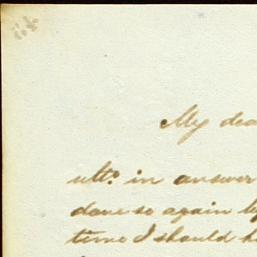 My dea
ulto. in answer
done so again by
time I should h